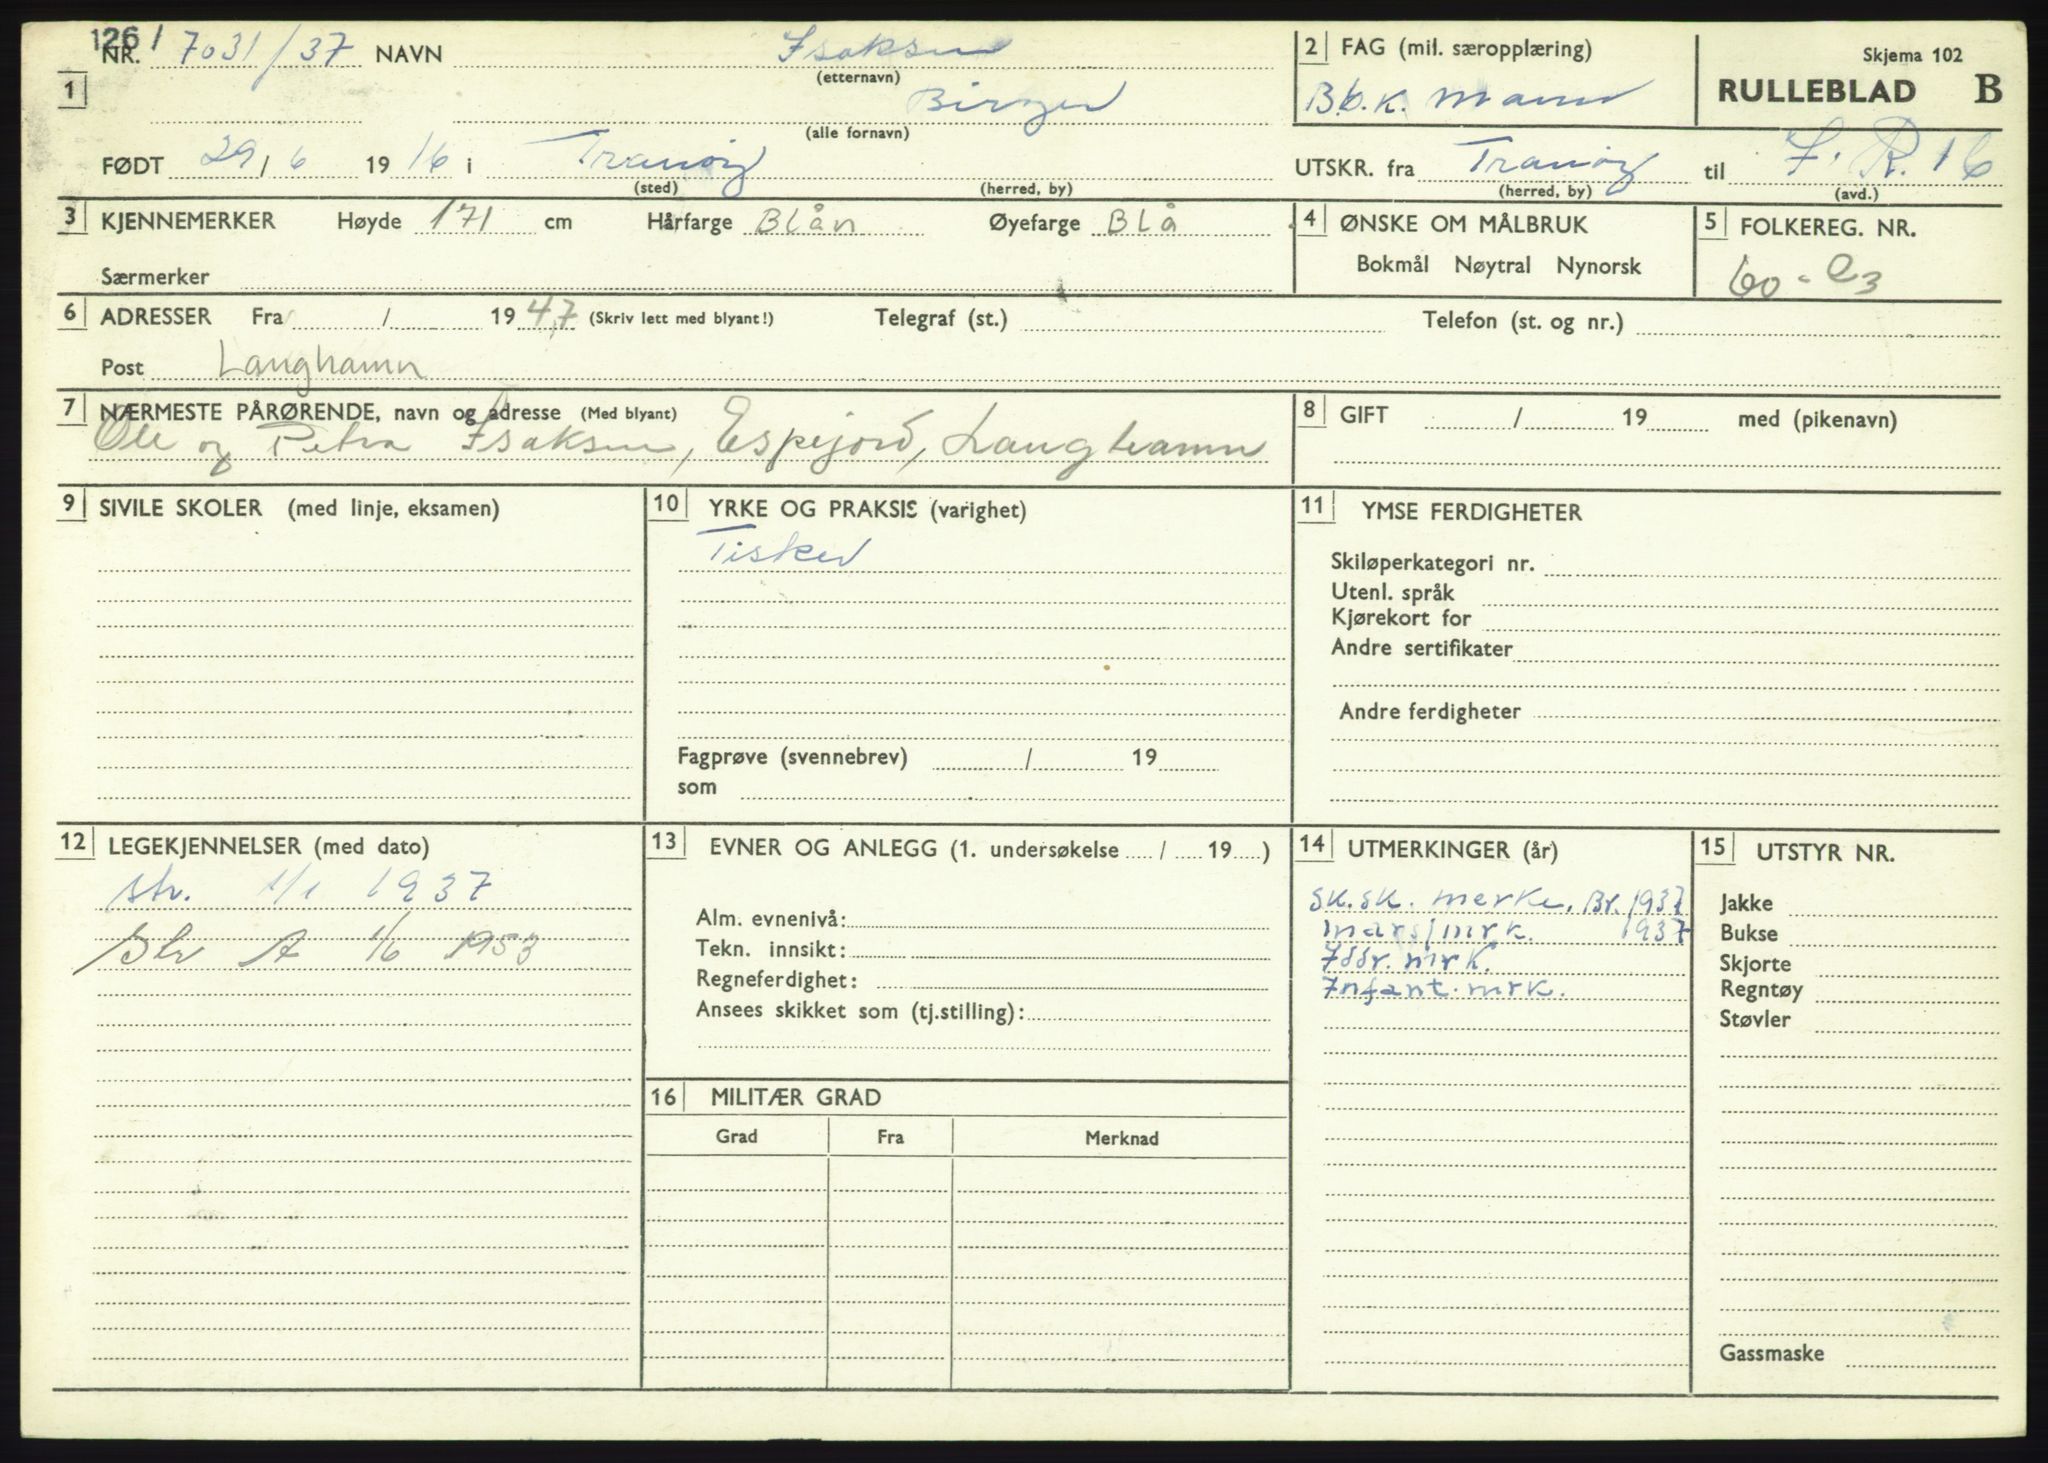 1261
NR. 7031/37 NAVN Isaksen
(etternavn)
1
Birger
(alle fornavn)
FØDT 29/6 1916 i Tranøy
(sted) (herred, by)
2 FAG (mil. særopplæring)
Bb.k. mann
Skjema 102
RULLEBLAD B
UTSKR. fra Tranøy til I.R. 16
(herred, by) (avd.)
3 KJENNEMERKER Høyde 171 cm Hårfarge Blån Øyefarge Blå
Særmerker
4 ØNSKE OM MÅLBRUK
Bokmål Nøytral Nynorsk
5 FOLKEREG. NR.
60-03
6 ADRESSER Fra / 1947 (Skriv lett med blyant!) Telegraf (st.) Telefon (st. og nr.)
Post Langhamn
7 NÆRMESTE PÅRØRENDE, navn og adresse (Med blyant)
Ole og Petra Isaksen, Espejord, Langhamn
8 GIFT / 19 med (pikenavn)
9 SIVILE SKOLER (med linje, eksamen)
10 YRKE OG PRAKSIS (varighet)
Fisker
Fagprøve (svennebrev) / 19
som
11 YMSE FERDIGHETER
Skiløperkategori nr.
Utenl. språk
Kjørekort for
Andre sertifikater
Andre ferdigheter
12 LEGEKJENNELSER (med dato)
str. 1/1 1937
Str A 1/6 1953
13 EVNER OG ANLEGG (1. undersøkelse / 19 )
Alm. evnenivå:
Tekn. innsikt:
Regneferdighet:
Ansees skikket som (tj.stilling):
16 MILITÆR GRAD
Grad Fra Merknad
14 UTMERKINGER (år)
Sk.sk. merke. Br. 1937
Marsjmrk. 1937
Iddr. mrk.
Infant. mrk.
15 UTSTYR NR.
Jakke
Bukse
Skjorte
Regntøy
Støvler
Gassmaske